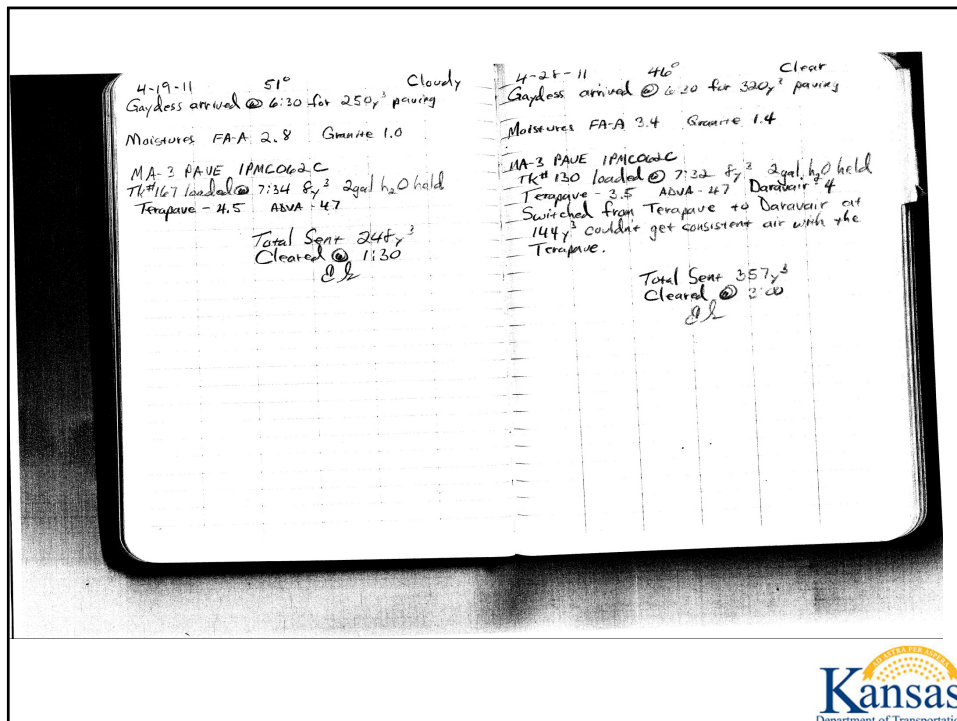 4-19-11 51° Cloudy
Gaydess arrived @ 6:30 for 250y³ paving
Moistures FA-A 2.8 Granite 1.0
MA-3 PAVE 1PMC062C
Tk#167 loaded @ 7:34 8y³ 2gal h₂O held
Terapave - 4.5 ADVA - 47
Total Sent 248y³
Cleared @ 1:30
4-28-11 46° Clear
Gaydess arrived @ 6:30 for 320y³ paving
Moistures FA-A 3.4 Granite 1.4
MA-3 PAVE 1PMC062C
TK# 130 loaded @ 7:32 8y³ 2gal h₂O held
Terapave - 3.5 ADVA - 47 Daravair - 4
Switched from Terapave to Daravair at
144y³ couldn't get consistent air with the
Terapave.
Total Sent 357y³
Cleared @ 3:00
AD ASTRA PER ASPERA
Kansas
Department of Transportation